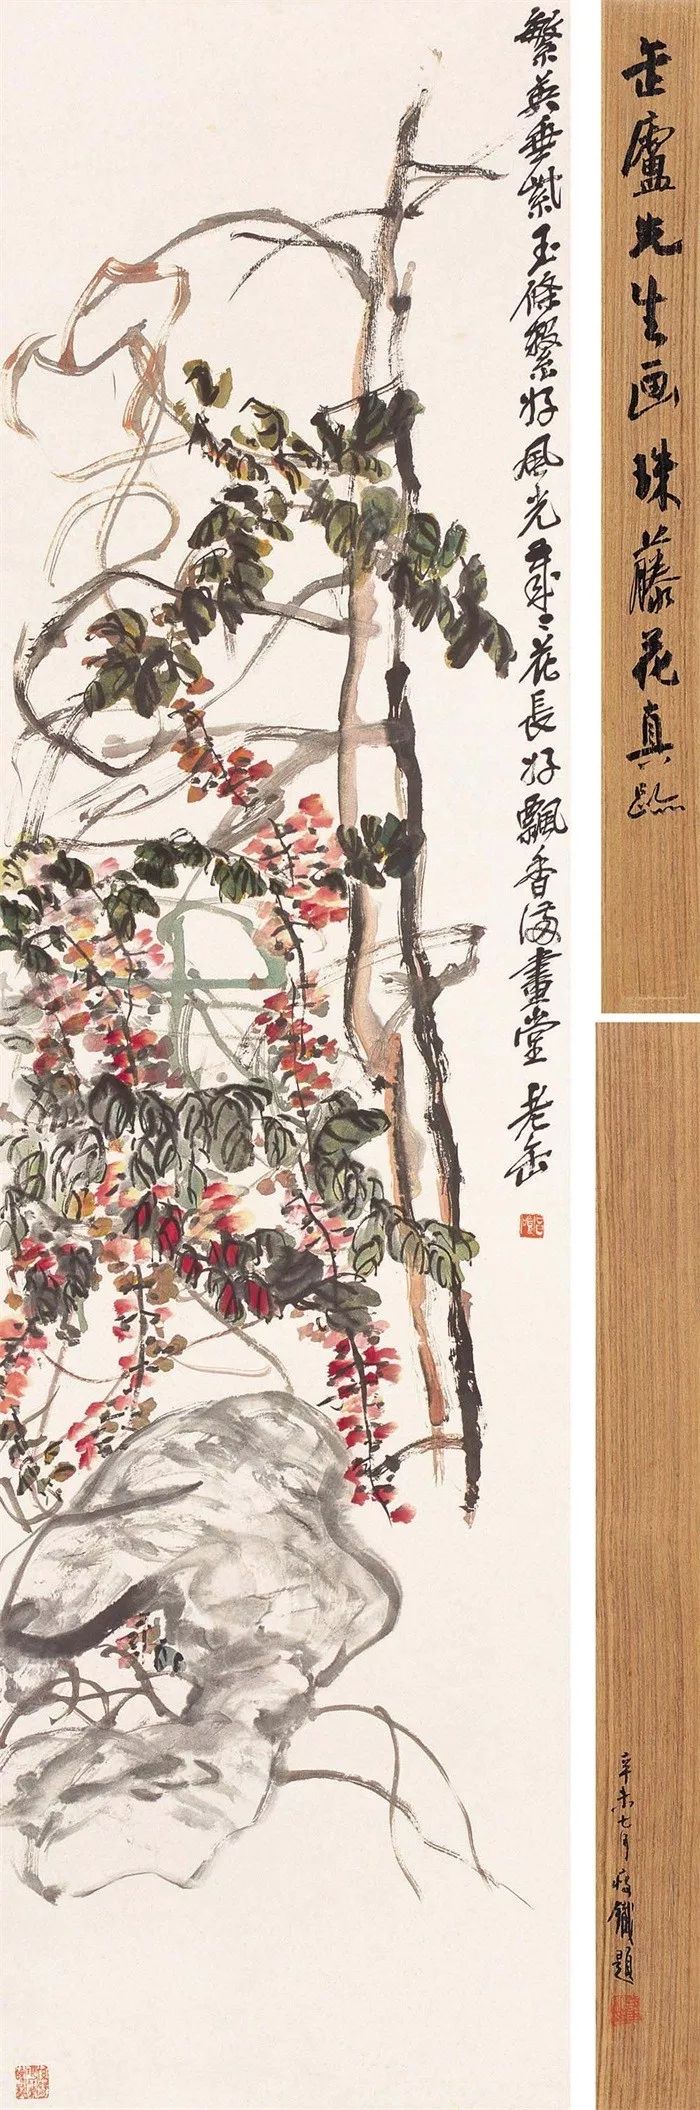 繁英垂紫玉條繫好風光歲々花長好飄香滿畫堂 老缶
缶廬先生画珠藤花真迹
辛未七月 瘦鐵題